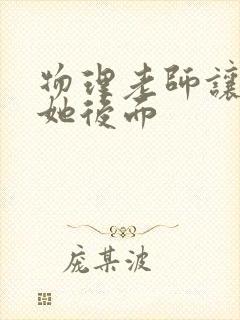 物理老師讓
她後而
庞某波